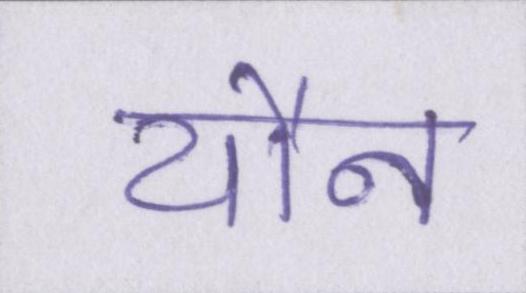 यौन